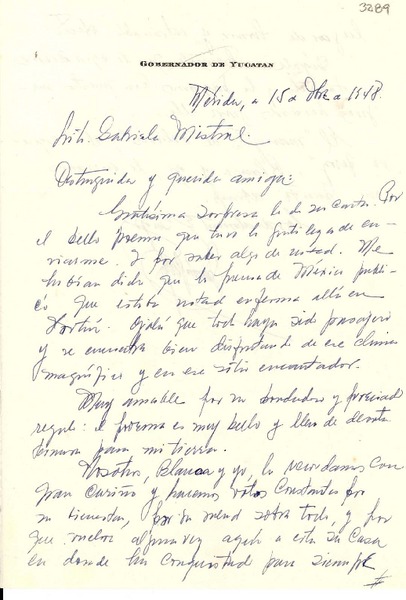 3289
GOBERNADOR DE YUCATAN
Mérida, a 15 de Dbre de 1948.
Srita. Gabriela Mistral.
Distinguida y querida amiga:
Gratísima sorpresa la de su carta. Por
el bello poema que tuvo la gentileza de en-
viarme. Y por saber algo de usted. Me
habían dicho que la prensa de México publi-
có que estaba usted enferma allá en
Fortín. Ojalá que todo haya sido pasajero
y se encuentre bien disfrutando de ese clima
magnífico y en ese sitio encantador.
Muy amable por su bondadoso y preciado
regalo: el poema es muy bello y lleno de
ternura para mi tierra.
Nosotros, Blanca y yo, la recordamos con
gran cariño y hacemos votos constantes por
su bienestar, por su salud sobre todo, y por
que vuelva alguna vez aquí a esta su Casa
en donde ha conquistado para siempre